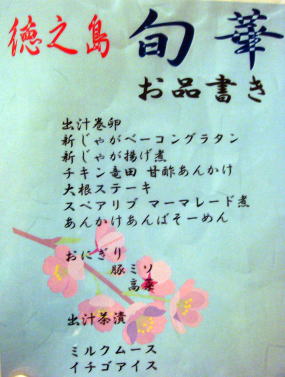 徳之島 旬華
お品書き
出汁巻卵
新じゃがベーコングラタン
新じゃが揚げ煮
チキン竜田 甘酢あんかけ
大根ステーキ
スペアリブ マーマレード煮
あんかけあんばそーめん
おにぎり
豚ミソ
高菜
出汁茶漬
ミルクムース
イチゴアイス